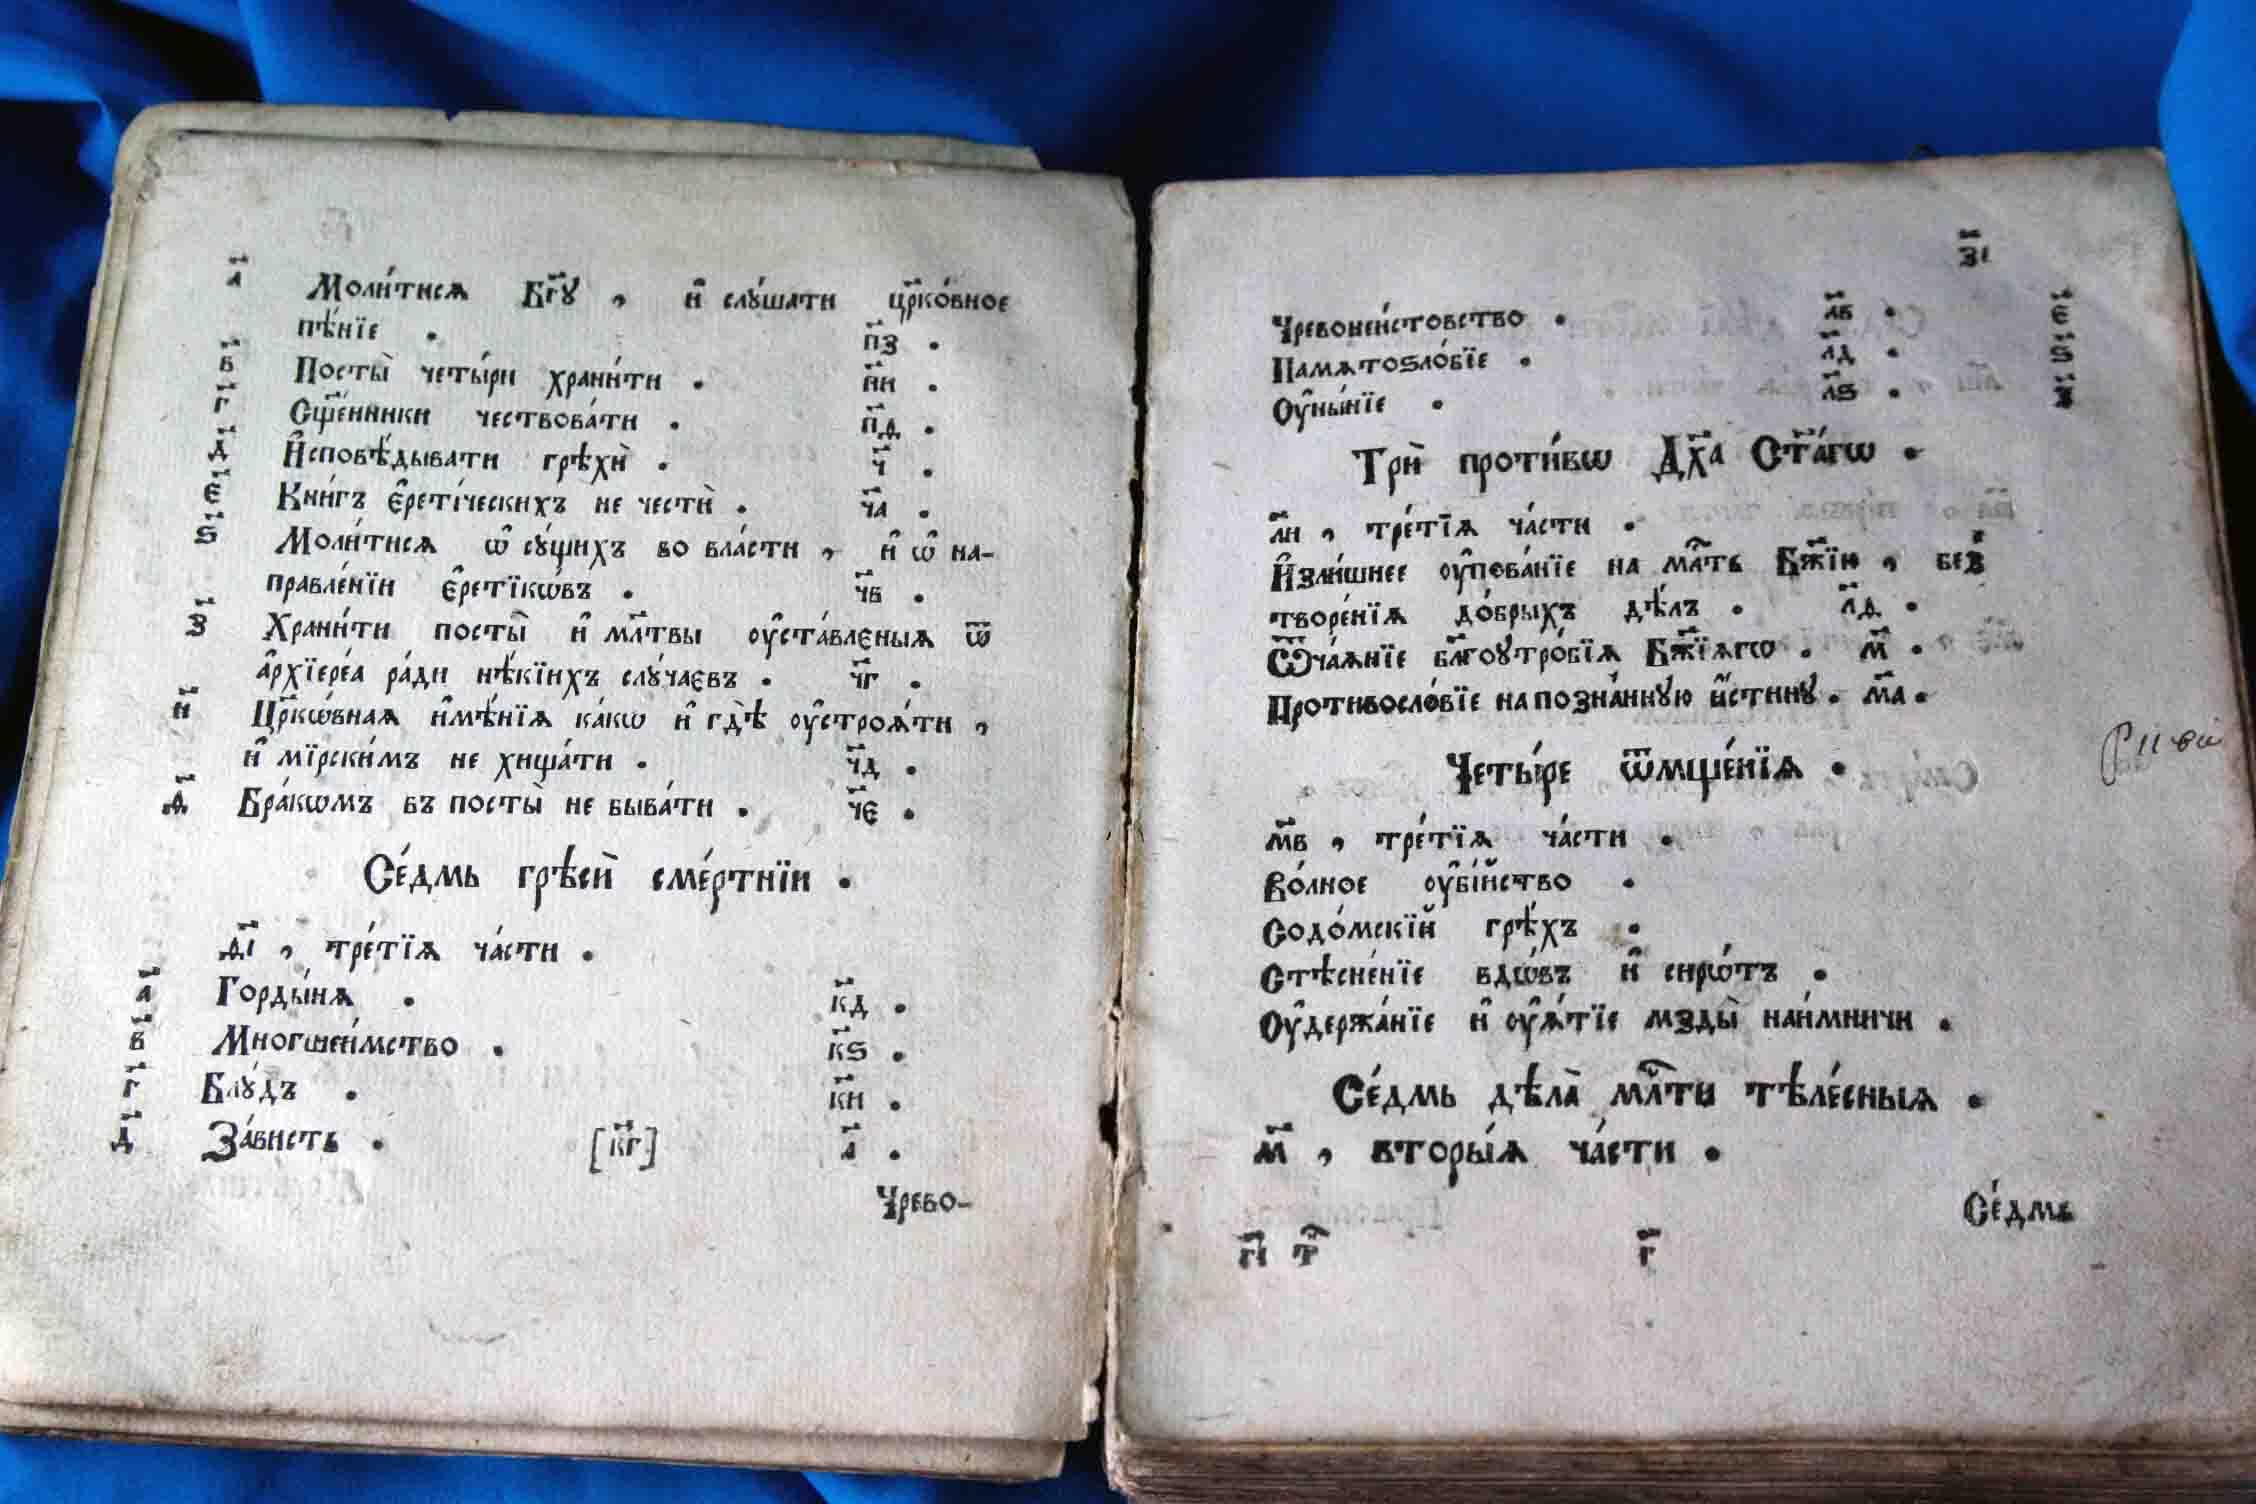 а҃ Моли́тисѧ Бг҃у , и҆ слу́шати цр҃ко́вное
пѣ́нїе . п҃з .
в҃ Посты̀ четы́ри храни́ти . п҃и .
г҃ Сщ҃е́нники чествова́ти . п҃ѳ .
д҃ И҆сповѣ́дывати грѣхѝ . ч҃ .
є҃ Кни́гъ є҆рети́ческихъ не честѝ . ч҃а .
ѕ҃ Моли́тисѧ ѡ҆ су́щихъ во вла́сти , и҆ ѡ҆ на-
правле́нїи є҆ретїкѡ́въ . ч҃в .
з҃ Храни́ти посты̀ и҆ мл҃твы оу҆ста́вленыѧ ѿ
а҆рхїере́а ра́ди нѣ́кїихъ слу́чаєвъ . ч҃г .
и҃ Цр҃кѡ́внаѧ и҆мѣ́нїѧ ка́кѡ и҆ гдѣ̀ оу҆строѧ́ти ,
и҆ мїрски́мъ не хища́ти . ч҃д .
ѳ҃ Бра́кѡмъ въ посты̀ не быва́ти . ч҃є .
Се́дмь грѣсѝ сме́ртнїи .
ѳ҃і , тре́тїѧ ча́сти .
а҃ Горды́нѧ . к҃д .
в҃ Многѡиеи́мство . к҃ѕ .
г҃ Блу́дъ . к҃и .
д҃ За́висть . [к҃г] л҃ .
Чрево-
з҃і
Чревонеи́стовство . л҃в . є҃
Памѧтоѕло́бїе . л҃д . ѕ҃
Оу҆ны́нїе . л҃ѕ . з҃
Трѝ проти́вѡ Дх҃а Ст҃а́гѡ .
л҃и , тре́тїѧ ча́сти .
И҆зли́шнее оу҆пова́нїе на мт҃ь Бж҃їю , без̾
творе́нїѧ до́брыхъ дѣ́лъ . л҃ѳ .
Ѿча́ѧнїе бл҃гоутро́бїѧ Бж҃їѧгѡ . м҃ .
Противосло́вїе на позна́нную и҆́стину . м҃а .
Четы́ре ѿмще́нїѧ .
м҃в , тре́тїѧ ча́сти .
Во́лное оу҆бі́йство .
Содо́мскїй грѣ́хъ .
Стѣсне́нїе вдѡ́въ и҆ сирѡ́тъ .
Оу҆держа́нїе и҆ оу҆ѧ́тїе мзды̀ наи́мничи .
Се́дмь дѣла̀ мл҃ти тѣле́сныѧ .
м҃ , вторы́ѧ ча́сти .
Се́дмь
г҃і т҃ г҃